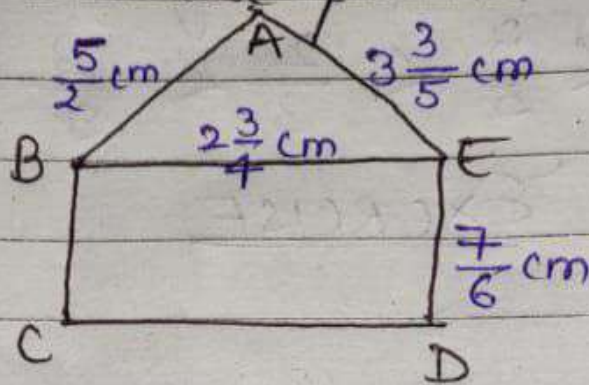 A
5/2 cm
3 3/5 cm
2 3/4 cm
B
E
7/6 cm
C
D